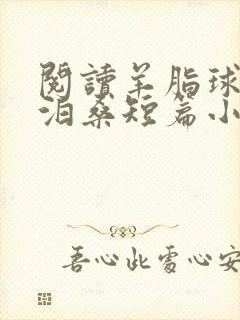 閱讀羊脂球
泊桑短篇小
吾心此處心安